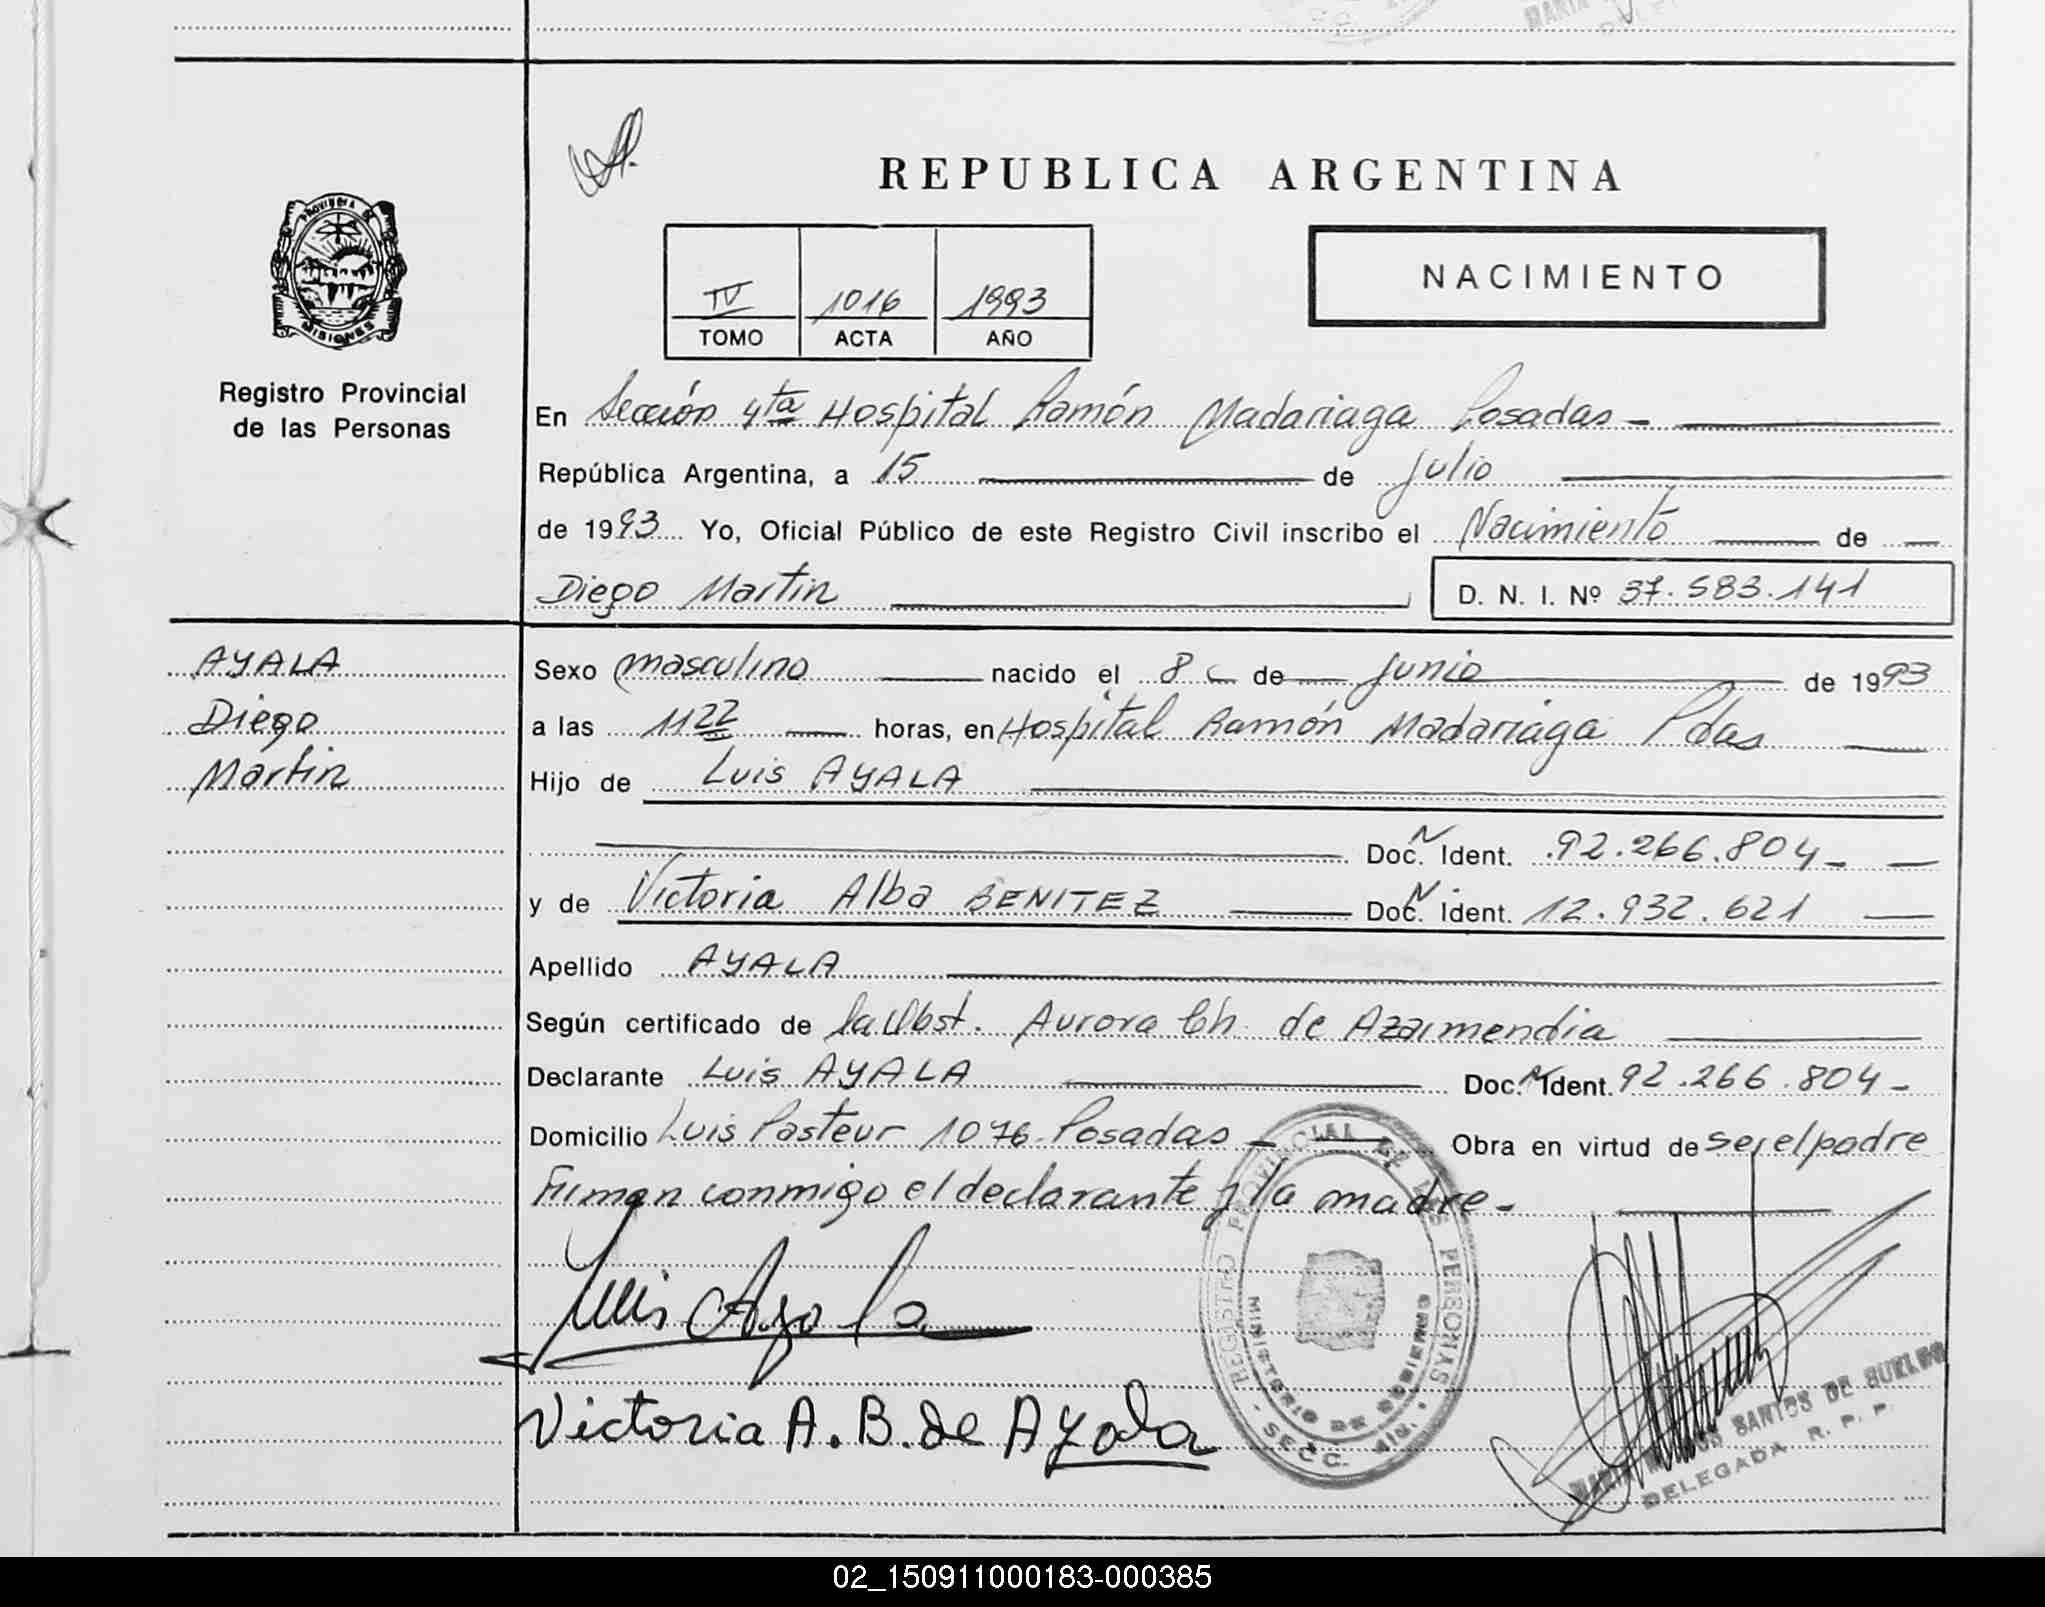 REPUBLICA ARGENTINA
PROVINCIA DE
MISIONES
Registro Provincial
de las Personas
IV 1016 1993
TOMO ACTA AÑO
NACIMIENTO
En Sección 4ta Hospital Ramón Madariaga Posadas -
República Argentina, a 15 de julio
de 1993 Yo, Oficial Público de este Registro Civil inscribo el Nacimiento de
Diego Martin D. N. I. Nº 37.583.141
AYALA
Diego
Martin
Sexo masculino nacido el 8 de junio de 1993
a las 11 22 horas, en Hospital Ramón Madariaga Pdas
Hijo de Luis AYALA
Doc. Ident. 92.266.804-
y de Victoria Alba BENITEZ Doc. Ident. 12.932.621
Apellido AYALA
Según certificado de la Obst. Aurora Ch. de Azarmendia
Declarante Luis AYALA Doc. Ident. 92.266.804-
Domicilio Luis Pasteur 1076 Posadas - Obra en virtud de ser el padre
Firman conmigo el declarante y la madre -
Luis Ayala
Victoria A. B. de Ayala
REGISTRO PROVINCIAL DE LAS PERSONAS
MINISTERIO DE GOBIERNO
- SECC. 4ta. -
SANTOS DE
DELEGADA R. P. P.
02_150911000183-000385